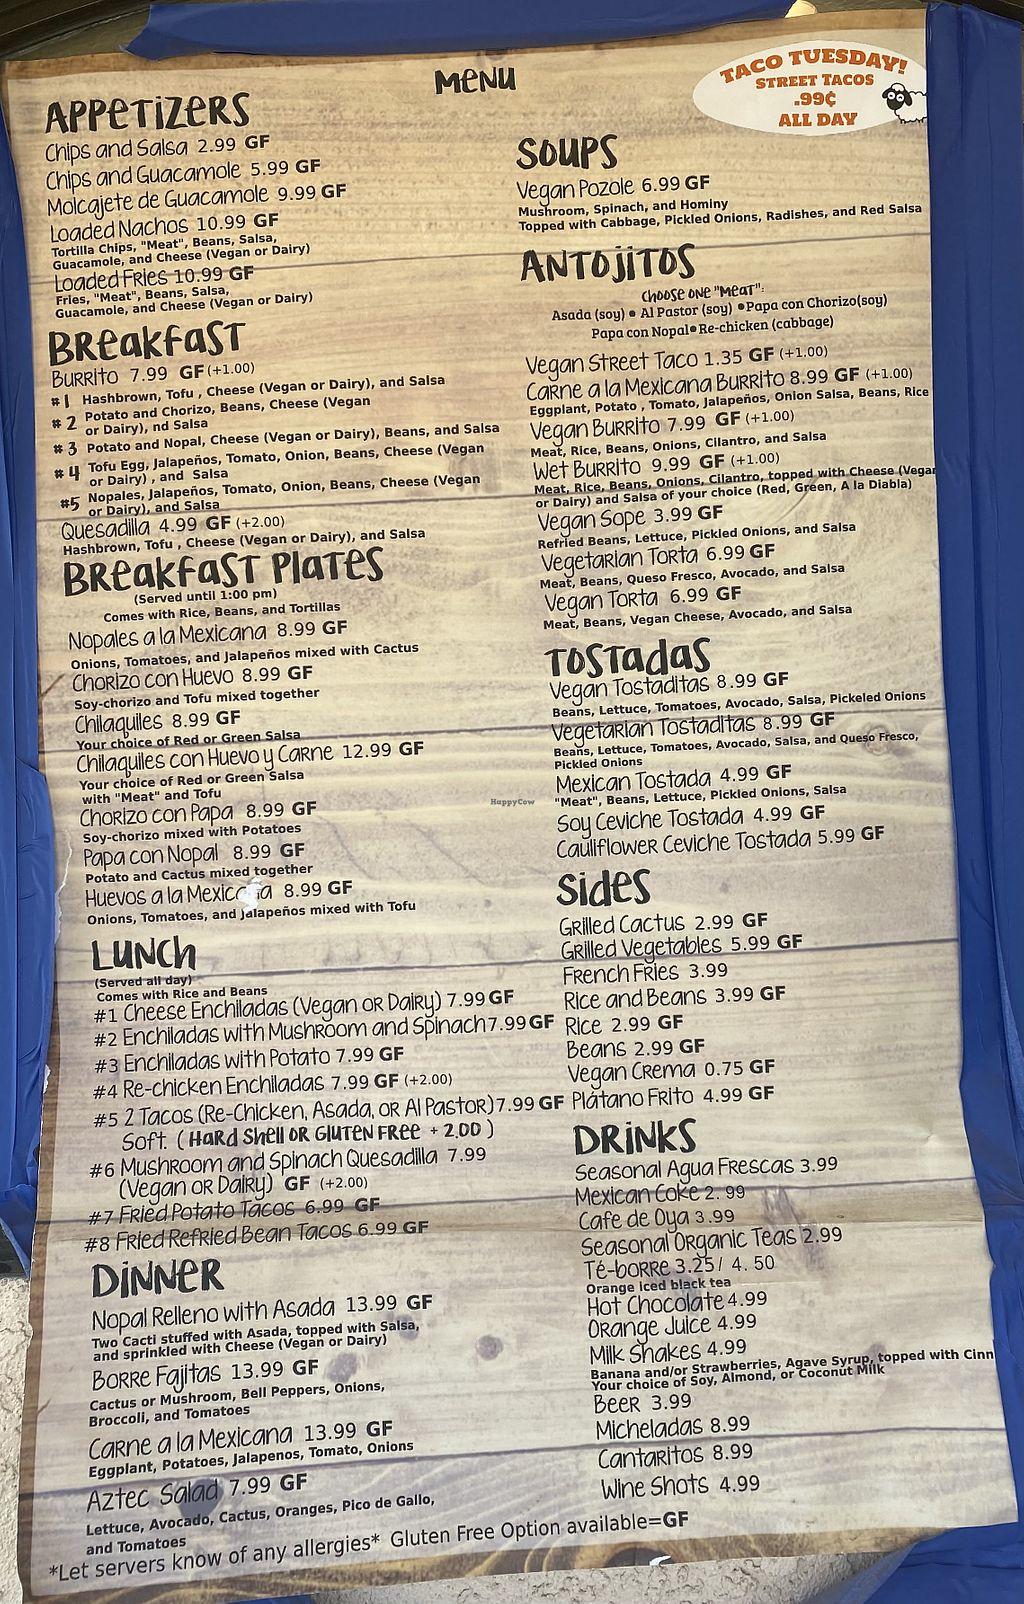 MENU
TACO TUESDAY!
STREET TACOS
.99¢
ALL DAY
APPETIZERS
Chips and Salsa 2.99 GF
Chips and Guacamole 5.99 GF
Molcajete de Guacamole 9.99 GF
Loaded Nachos 10.99 GF
Tortilla Chips, "Meat", Beans, Salsa,
Guacamole, and Cheese (Vegan or Dairy)
Loaded Fries 10.99 GF
Fries, "Meat", Beans, Salsa,
Guacamole, and Cheese (Vegan or Dairy)
Breakfast
Burrito 7.99 GF (+1.00)
#1 Hashbrown, Tofu , Cheese (Vegan or Dairy), and Salsa
#2 Potato and Chorizo, Beans, Cheese (Vegan
or Dairy), nd Salsa
#3 Potato and Nopal, Cheese (Vegan or Dairy), Beans, and Salsa
#4 Tofu Egg, Jalapeños, Tomato, Onion, Beans, Cheese (Vegan
or Dairy) , and Salsa
#5 Nopales, Jalapeños, Tomato, Onion, Beans, Cheese (Vegan
or Dairy), and Salsa
Quesadilla 4.99 GF (+2.00)
Hashbrown, Tofu , Cheese (Vegan or Dairy), and Salsa
Breakfast Plates
(Served until 1:00 pm)
Comes with Rice, Beans, and Tortillas
Nopales a la Mexicana 8.99 GF
Onions, Tomatoes, and Jalapeños mixed with Cactus
Chorizo con Huevo 8.99 GF
Soy-chorizo and Tofu mixed together
Chilaquiles 8.99 GF
Your choice of Red or Green Salsa
Chilaquiles con Huevo y Carne 12.99 GF
Your choice of Red or Green Salsa
with "Meat" and Tofu
Chorizo con Papa 8.99 GF
Soy-chorizo mixed with Potatoes
Papa con Nopal 8.99 GF
Potato and Cactus mixed together
Huevos a la Mexicana 8.99 GF
Onions, Tomatoes, and Jalapeños mixed with Tofu
Lunch
(Served all day)
Comes with Rice and Beans
#1 Cheese Enchiladas (Vegan or Dairy) 7.99 GF
#2 Enchiladas with Mushroom and Spinach 7.99 GF
#3 Enchiladas with Potato 7.99 GF
#4 Re-chicken Enchiladas 7.99 GF (+2.00)
#5 2 Tacos (Re-Chicken, Asada, or Al Pastor) 7.99 GF
Soft. (Hard Shell or Gluten Free + 2.00)
#6 Mushroom and Spinach Quesadilla 7.99
(Vegan or Dairy) GF (+2.00)
#7 Fried Potato Tacos 6.99 GF
#8 Fried Refried Bean Tacos 6.99 GF
Dinner
Nopal Relleno with Asada 13.99 GF
Two Cacti stuffed with Asada, topped with Salsa,
and sprinkled with Cheese (Vegan or Dairy)
Borre Fajitas 13.99 GF
Cactus or Mushroom, Bell Peppers, Onions,
Broccoli, and Tomatoes
Carne a la Mexicana 13.99 GF
Eggplant, Potatoes, Jalapenos, Tomato, Onions
Aztec Salad 7.99 GF
Lettuce, Avocado, Cactus, Oranges, Pico de Gallo,
and Tomatoes
*Let servers know of any allergies* Gluten Free Option available=GF
Soups
Vegan Pozole 6.99 GF
Mushroom, Spinach, and Hominy
Topped with Cabbage, Pickled Onions, Radishes, and Red Salsa
Antojitos
Choose one "meat":
Asada (soy) • Al Pastor (soy) • Papa con Chorizo(soy)
Papa con Nopal • Re-chicken (cabbage)
Vegan Street Taco 1.35 GF (+1.00)
Carne a la Mexicana Burrito 8.99 GF (+1.00)
Eggplant, Potato , Tomato, Jalapeños, Onion Salsa, Beans, Rice
Vegan Burrito 7.99 GF (+1.00)
Meat, Rice, Beans, Onions, Cilantro, and Salsa
Wet Burrito 9.99 GF (+1.00)
Meat, Rice, Beans, Onions, Cilantro, topped with Cheese (Vegan
or Dairy) and Salsa of your choice (Red, Green, A la Diabla)
Vegan Sope 3.99 GF
Refried Beans, Lettuce, Pickled Onions, and Salsa
Vegetarian Torta 6.99 GF
Meat, Beans, Queso Fresco, Avocado, and Salsa
Vegan Torta 6.99 GF
Meat, Beans, Vegan Cheese, Avocado, and Salsa
Tostadas
Vegan Tostaditas 8.99 GF
Beans, Lettuce, Tomatoes, Avocado, Salsa, Pickeled Onions
Vegetarian Tostaditas 8.99 GF
Beans, Lettuce, Tomatoes, Avocado, Salsa, and Queso Fresco,
Pickled Onions
Mexican Tostada 4.99 GF
"Meat", Beans, Lettuce, Pickled Onions, Salsa
Soy Ceviche Tostada 4.99 GF
Cauliflower Ceviche Tostada 5.99 GF
Sides
Grilled Cactus 2.99 GF
Grilled Vegetables 5.99 GF
French Fries 3.99
Rice and Beans 3.99 GF
Rice 2.99 GF
Beans 2.99 GF
Vegan Crema 0.75 GF
Plátano Frito 4.99 GF
Drinks
Seasonal Agua Frescas 3.99
Mexican Coke 2.99
Cafe de Oya 3.99
Seasonal Organic Teas 2.99
Té-borre 3.25/ 4.50
Orange iced black tea
Hot Chocolate 4.99
Orange Juice 4.99
Milk Shakes 4.99
Banana and/or Strawberries, Agave Syrup, topped with Cinn
Your choice of Soy, Almond, or Coconut Milk
Beer 3.99
Micheladas 8.99
Cantaritos 8.99
Wine Shots 4.99
HappyCow